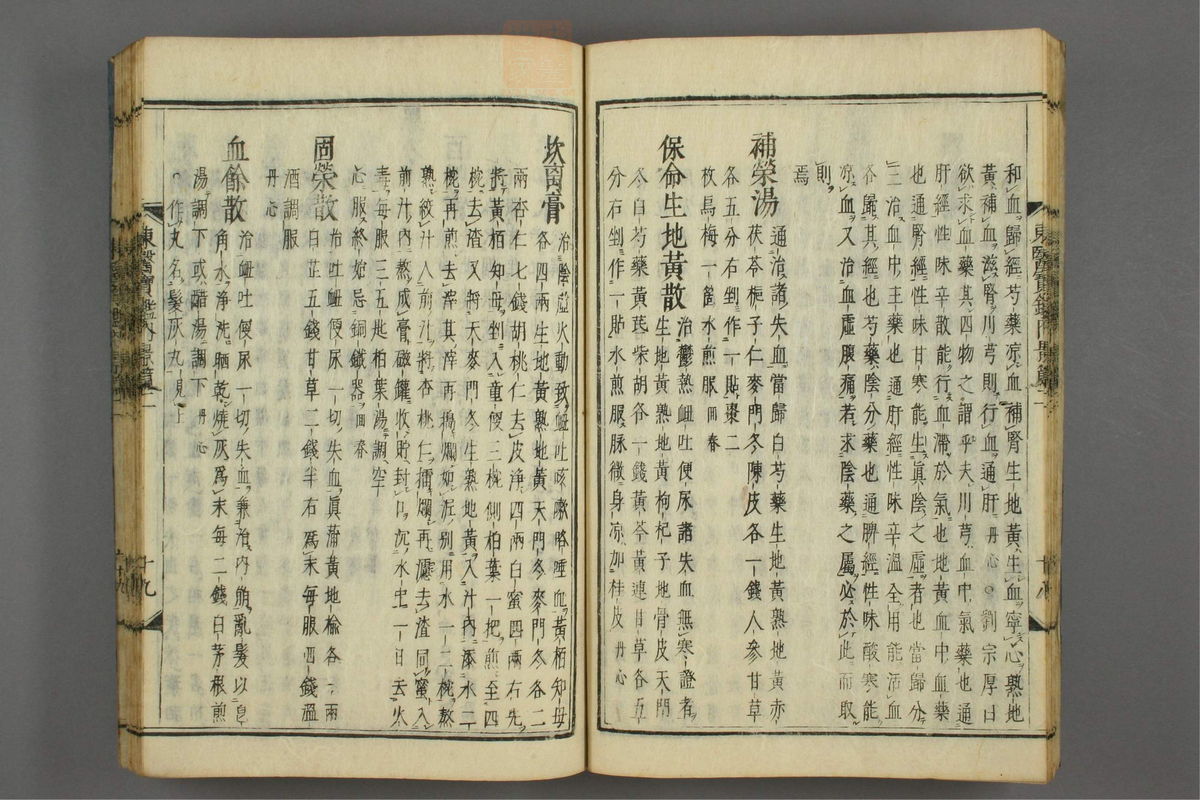 和血歸經芍藥凉血補腎生地黃生血寧心熟地
黃補血滋腎川芎則行血通肝丹心○劉宗厚曰
欲求血藥其四物之謂乎夫川芎血中氣藥也通
肝經性味辛散能行血滯於氣也地黃血中血藥
也通腎經性味甘寒能生眞陰之虛者也當歸分
三治血中主藥也通肝經性味辛溫全用能活血
各歸其經也芍藥陰分藥也通脾經性味酸寒能
凉血又治血虛腹痛若求陰藥之屬必於此而取
則焉
補榮湯 通治諸失血當歸白芍藥生地黃熟地黃赤
茯苓梔子仁麥門冬陳皮各一錢人參甘草
各五分右剉作一貼棗二
枚烏梅一箇水煎服回春
保命生地黃散 治鬱熱衄吐便尿諸失血無寒證者
生地黃熟地黃枸杞子地骨皮天門
冬白芍藥黃芪柴胡各一錢黃芩黃連甘草各五
分右剉作一貼水煎服脉微身凉加桂皮丹心
坎离膏 治陰虛火動致衄吐咳嗽咯唾血黃栢知母
各四兩生地黃熟地黃天門冬麥門冬各二
兩杏仁七錢胡桃仁去皮淨四兩白蜜四兩右先
將黃栢知母剉入童便三椀側柏葉一把煎至四
椀去渣又將天麥門冬生熟地黃入汁內添水二
椀再煎去滓其滓再搗爛如泥別用水一二椀熬
熟絞汁入前汁將杏桃仁擂爛再濾去渣同蜜入
前汁內熬成膏磁罐收貯封口沉水中一日去火
毒每服三五匙柏葉湯調空
心服終始忌銅鐵器回春
固榮散 治吐衄便尿一切失血眞蒲黃地楡各一兩
白芷五錢甘草二錢半右爲末每服四錢溫
酒調服
丹心
血餘散 治衄吐便尿一切失血兼治內崩亂髮以皂
角水淨洗晒乾燒灰爲末每二錢白茅根煎
湯調下或醋湯調下丹心
○作丸名髮灰丸見上
東醫寶鑑內景篇二
十八
東醫寶鑑內景篇二
十九